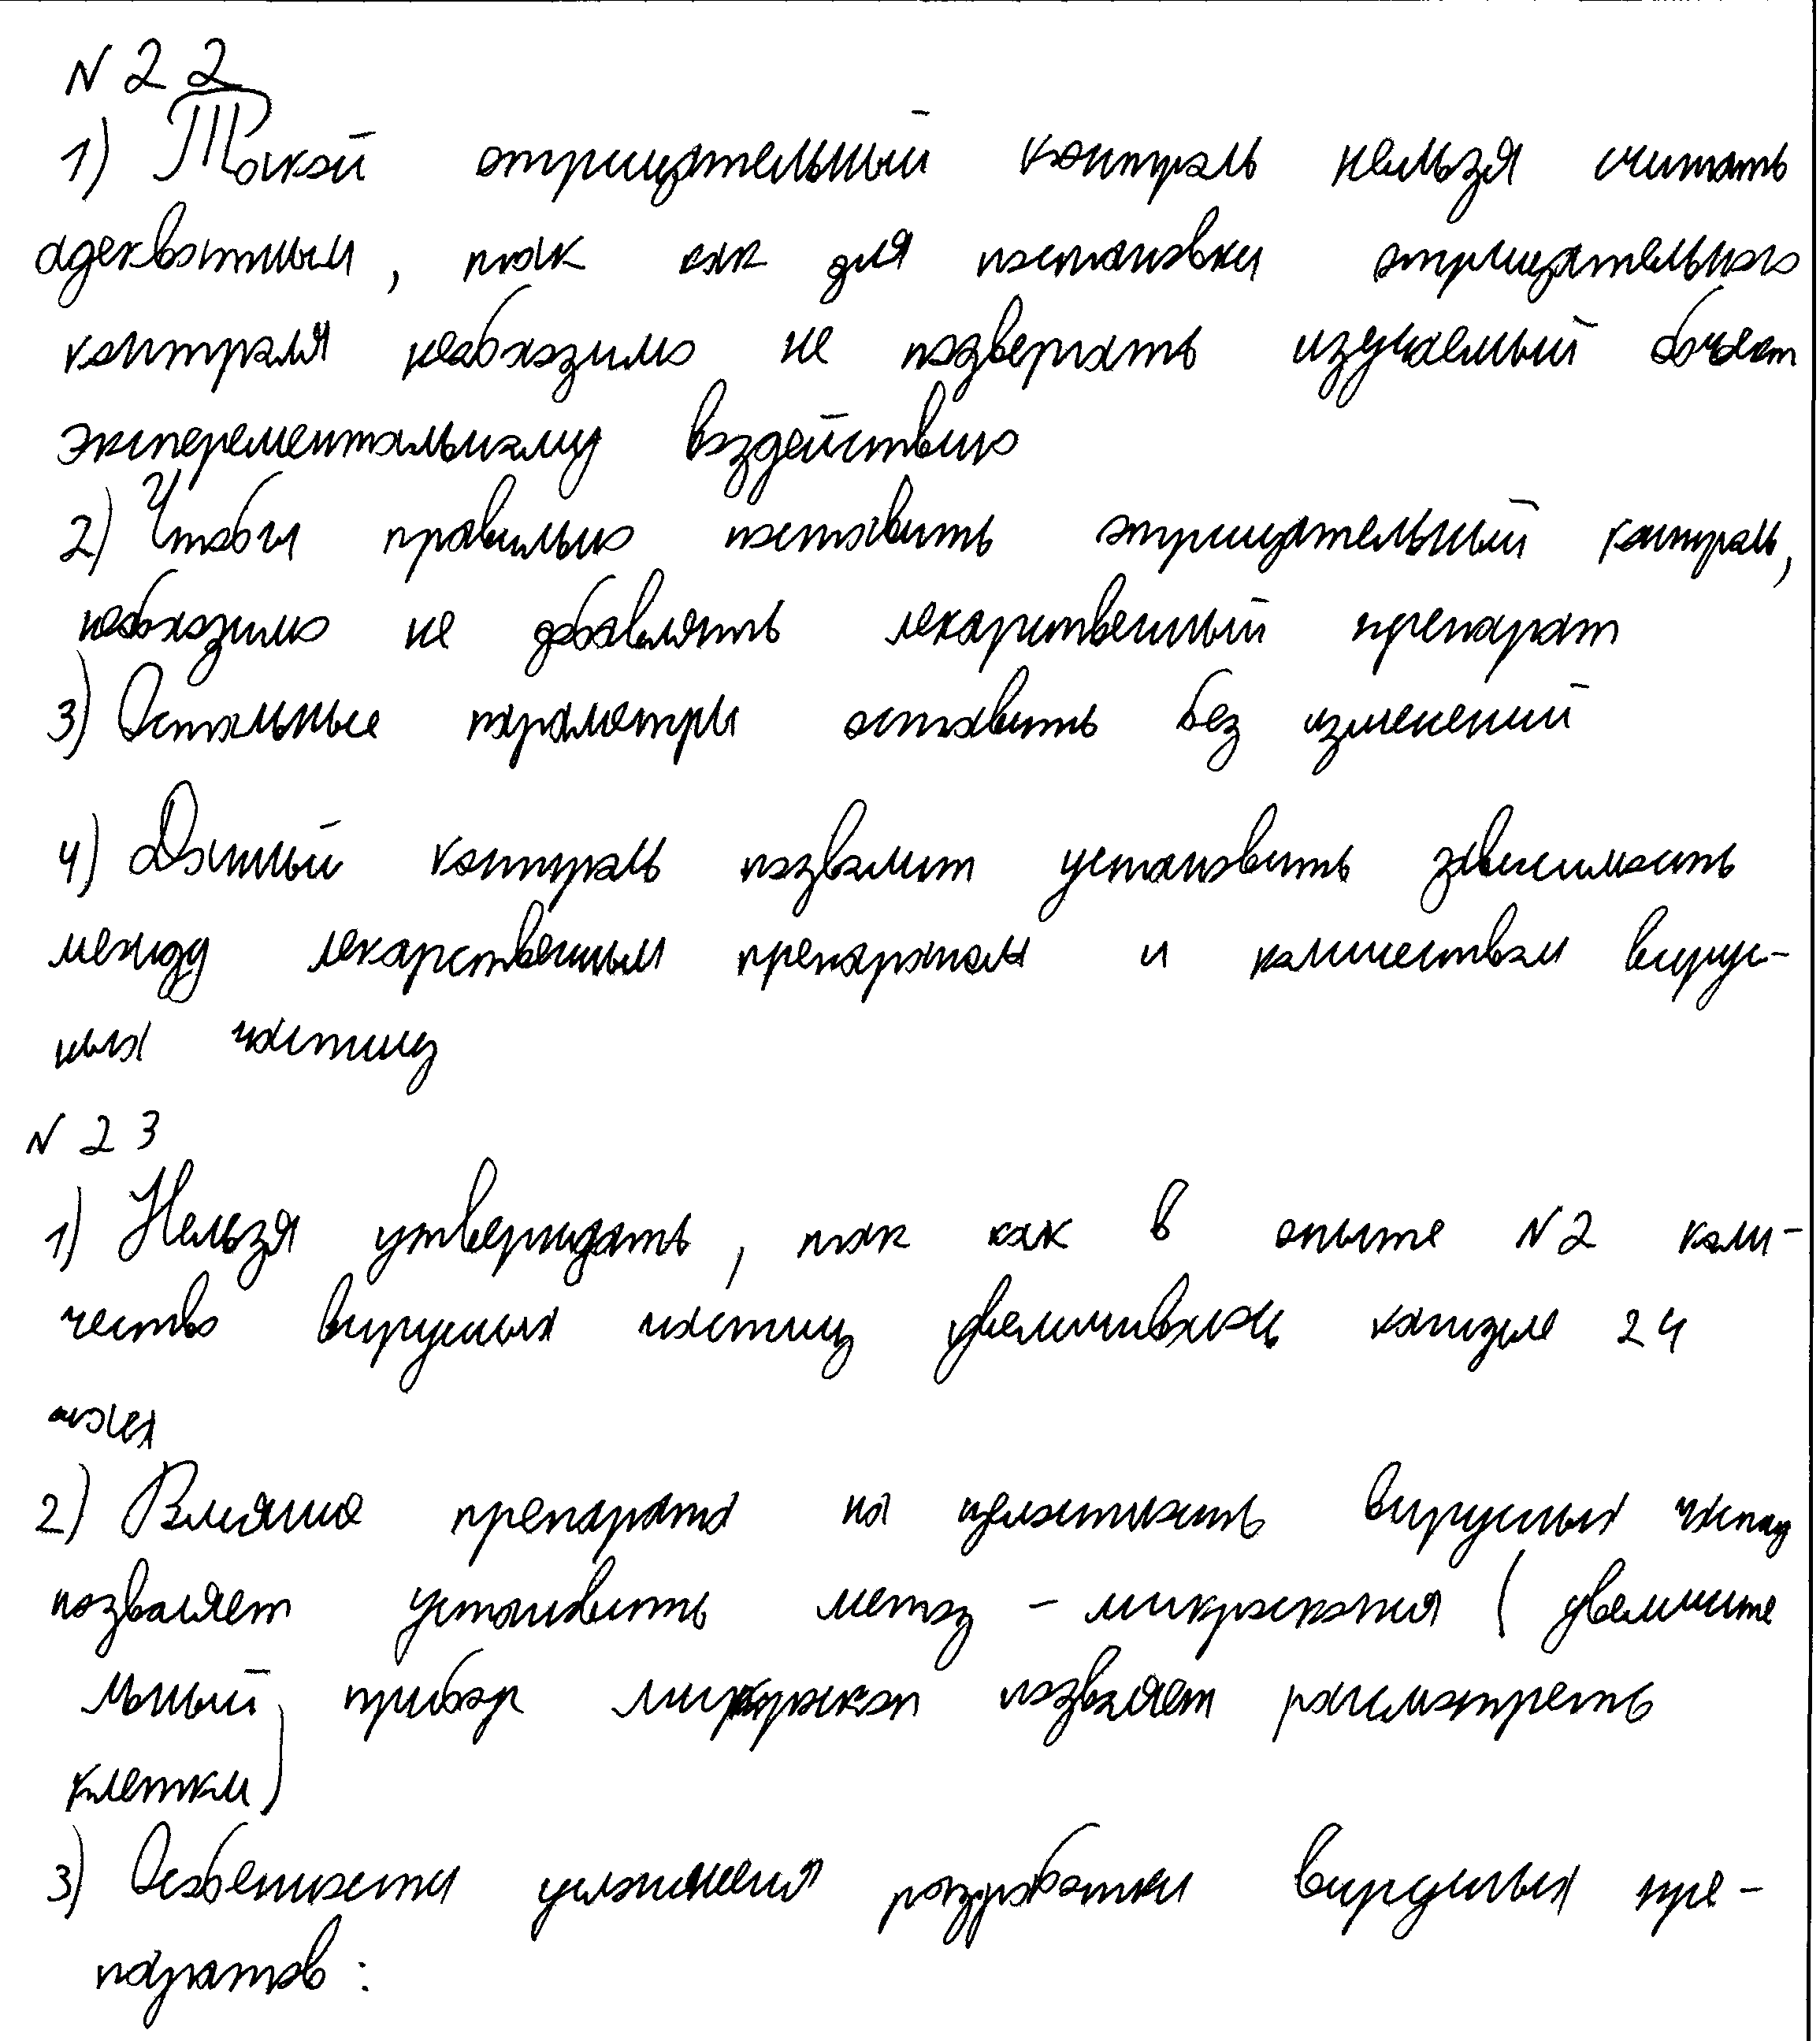 N 22
1) Такой отрицательный контроль нельзя считать
адекватным, так как для постановки отрицательного
контроля необходимо не подвергать изучаемый объект
эксперементальному воздействию
2) Чтобы правильно поставить отрицательный контроль,
необходимо не добавлять лекарственный препарат
3) Остальные параметры оставить без изменений
4) Данный контроль позволит установить зависимость
между лекарственным препаратом и количеством вирус-
ных частиц
N 23
1) Нельзя утверждать, так как в опыте N2 коли-
чество вирусных частиц увеличивалось каждые 24
часа
2) Влияние препарата на целостность вирусных частиц
позволяет установить метод - микроскопия (увеличите
льный прибор микроскоп позволяет рассмотреть
клетки)
3) Особенности усложнения разработки вирусных пре-
паратов: